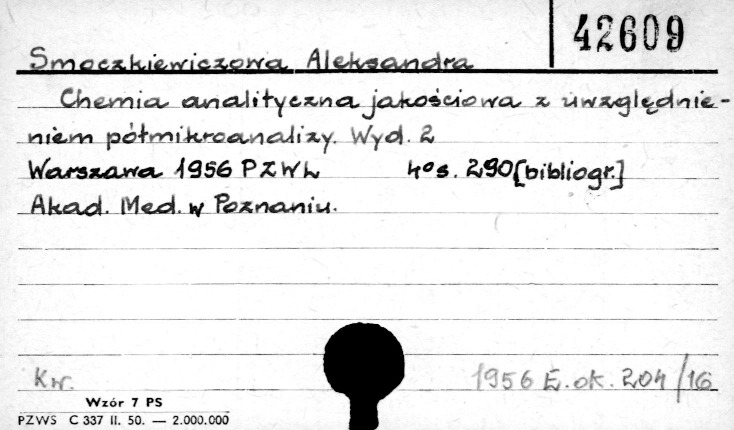 42609
Smoczkiewiczowa Aleksandra
Chemia analityczna jakościowa z uwzględnie-
niem półmikroanalizy. Wyd. 2
Warszawa 1956 PZWL 4°s. 290 [bibliogr.]
Akad. Med. w Poznaniu.
Kw. 1956 E. ok. 204/16
Wzór 7 PS
PZWS C 337 II. 50. — 2.000.000